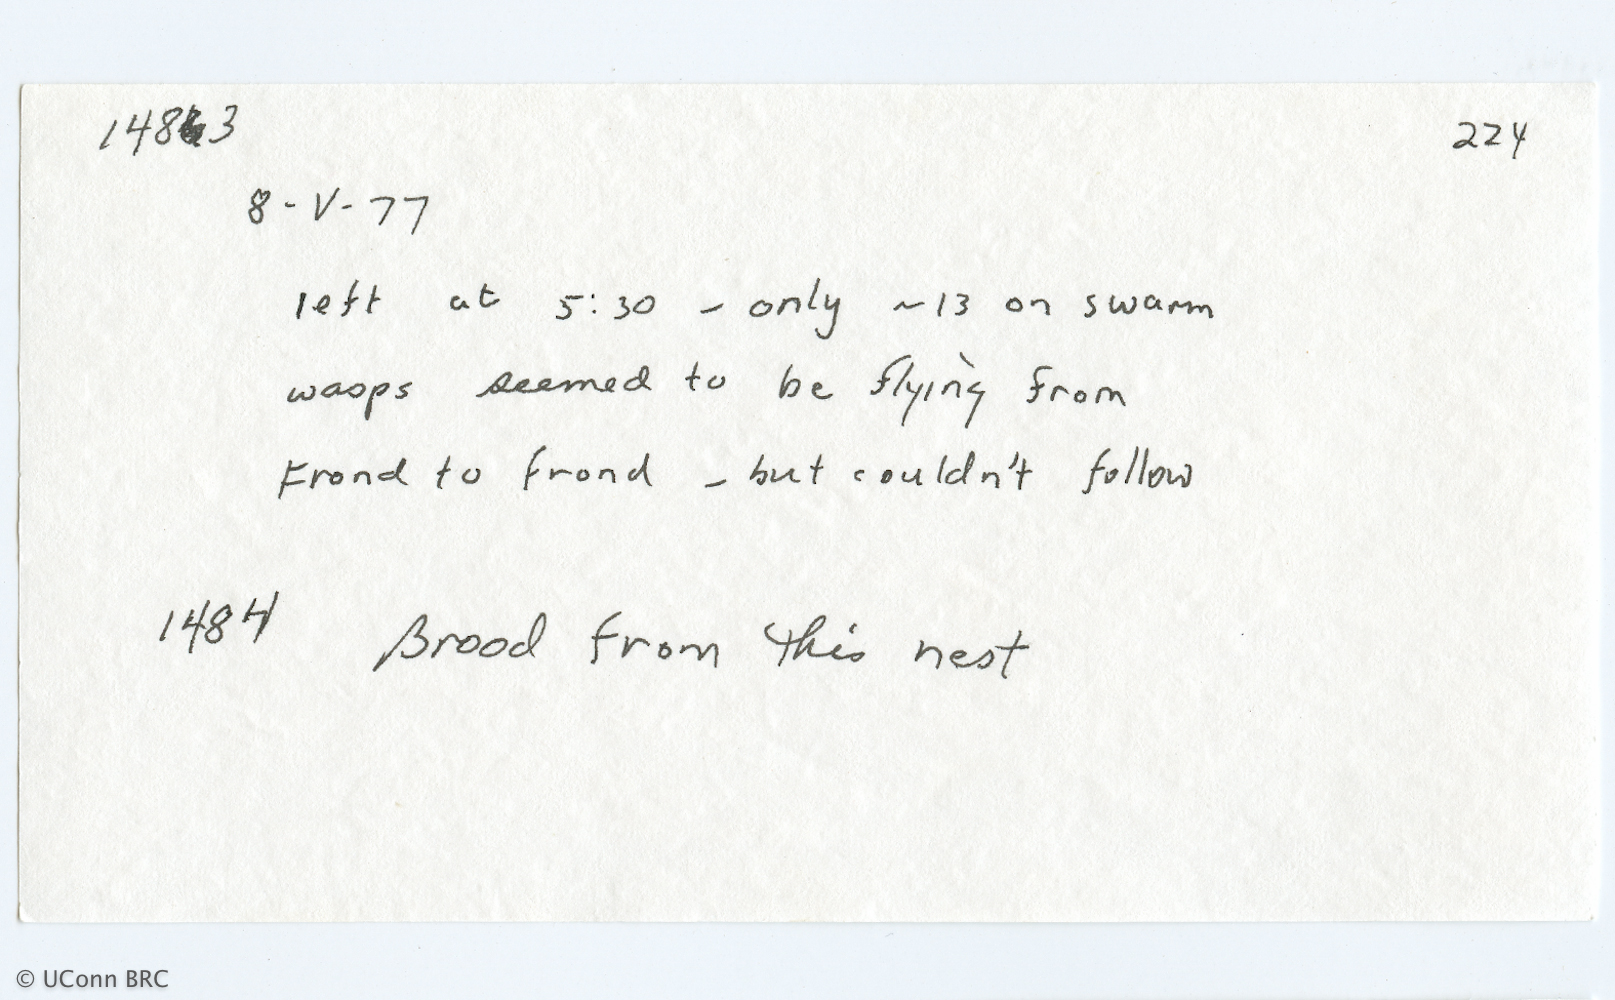 1483
224
8-V-77
left at 5:30 - only ~13 on swarm
wasps seemed to be flying from
Frond to frond - but couldn't follow
1484 Brood from this nest
© UConn BRC